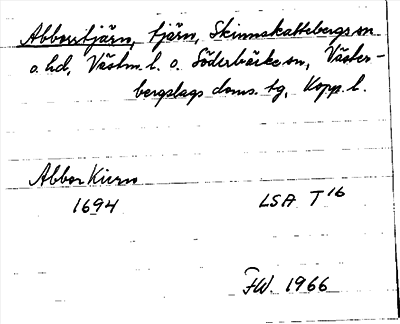 Abborrtjärn, tjärn, Skinnskattebergs sn
o. hd, Västm. l. o. Söderbärke sn, Väster-
bergslags doms. tg, Kopp. l.
Abbor Kiern
1694 LSA T 16
FW. 1966